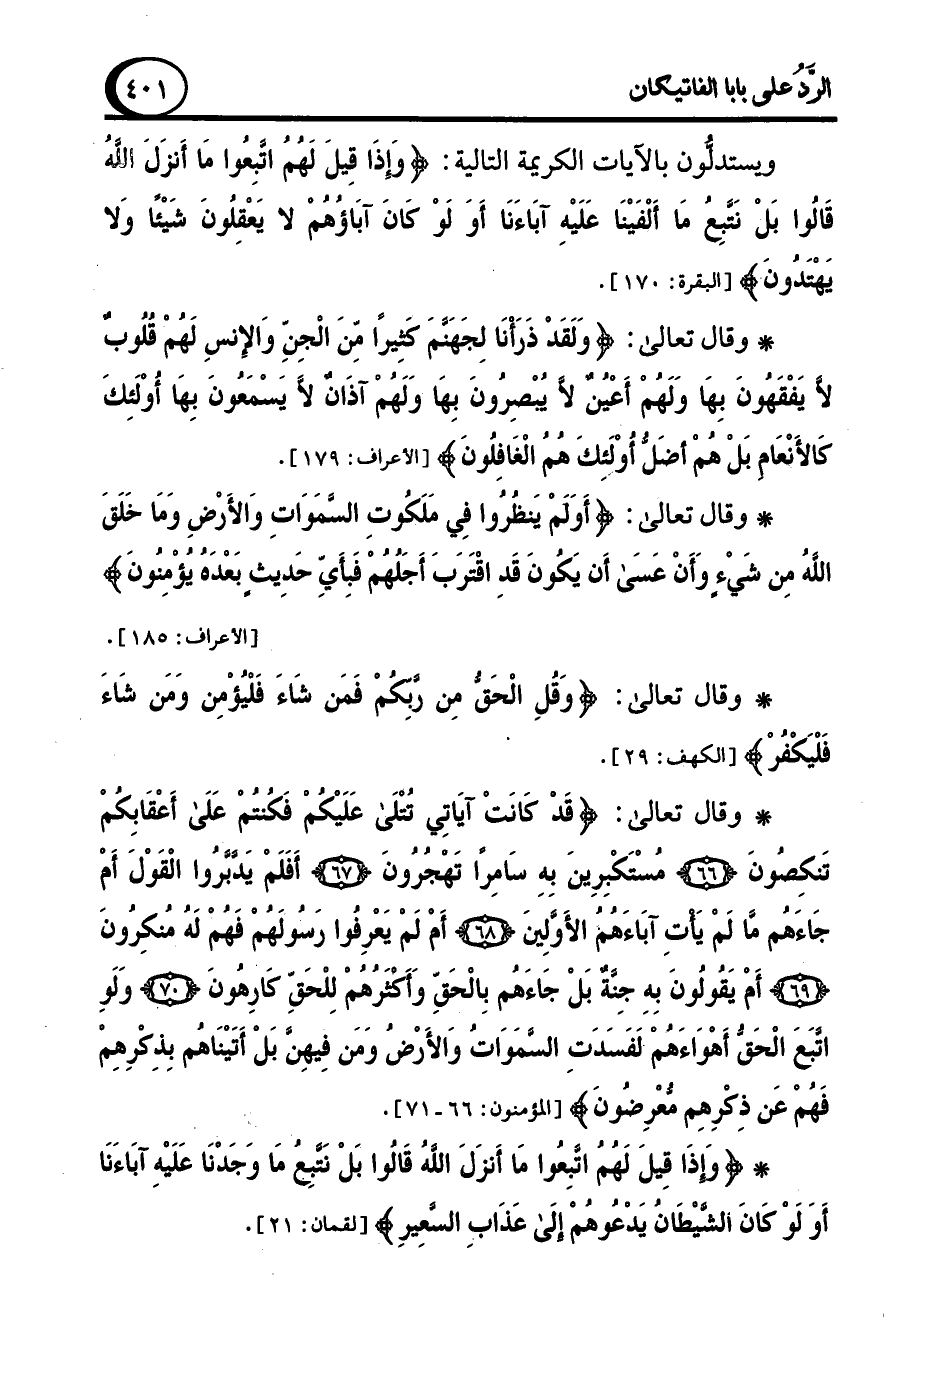 الرَّدُّ على بابا الفاتيكان
٤٠١
ويستدلُّون بالآيات الكريمة التالية: ﴿ وَإِذَا قِيلَ لَهُمُ اتَّبِعُوا مَا أَنزَلَ اللَّهُ
قَالُوا بَلْ نَتَّبِعُ مَا أَلْفَيْنَا عَلَيْهِ آبَاءَنَا أَوَ لَوْ كَانَ آبَاؤُهُمْ لا يَعْقِلُونَ شَيْئًا وَلا
يَهْتَدُونَ ﴾ [البقرة: ١٧٠].
* وقال تعالىٰ: ﴿ وَلَقَدْ ذَرَأْنَا لِجَهَنَّمَ كَثِيرًا مِّنَ الْجِنِّ وَالإِنسِ لَهُمْ قُلُوبٌ
لاَّ يَفْقَهُونَ بِهَا وَلَهُمْ أَعْيُنٌ لاَّ يُبْصِرُونَ بِهَا وَلَهُمْ آذَانٌ لاَّ يَسْمَعُونَ بِهَا أُوْلَئِكَ
كَالأَنْعَامِ بَلْ هُمْ أَضَلُّ أُوْلَئِكَ هُمُ الْغَافِلُونَ ﴾ [الأعراف: ١٧٩].
* وقال تعالىٰ: ﴿ أَوَلَمْ يَنظُرُوا فِي مَلَكُوتِ السَّمَوَاتِ وَالأَرْضِ وَمَا خَلَقَ
اللَّهُ مِن شَيْءٍ وَأَنْ عَسَىٰ أَن يَكُونَ قَدِ اقْتَرَبَ أَجَلُهُمْ فَبِأَيِّ حَدِيثٍ بَعْدَهُ يُؤْمِنُونَ ﴾
[الأعراف: ١٨٥].
* وقال تعالىٰ: ﴿ وَقُلِ الْحَقُّ مِن رَّبِّكُمْ فَمَن شَاءَ فَلْيُؤْمِن وَمَن شَاءَ
فَلْيَكْفُرْ ﴾ [الكهف: ٢٩].
* وقال تعالىٰ: ﴿ قَدْ كَانَتْ آيَاتِي تُتْلَىٰ عَلَيْكُمْ فَكُنتُمْ عَلَىٰ أَعْقَابِكُمْ
تَنكِصُونَ ﴿٦٦﴾ مُسْتَكْبِرِينَ بِهِ سَامِرًا تَهْجُرُونَ ﴿٦٧﴾ أَفَلَمْ يَدَّبَّرُوا الْقَوْلَ أَمْ
جَاءَهُم مَّا لَمْ يَأْتِ آبَاءَهُمُ الأَوَّلِينَ ﴿٦٨﴾ أَمْ لَمْ يَعْرِفُوا رَسُولَهُمْ فَهُمْ لَهُ مُنكِرُونَ
﴿٦٩﴾ أَمْ يَقُولُونَ بِهِ جِنَّةٌ بَلْ جَاءَهُم بِالْحَقِّ وَأَكْثَرُهُمْ لِلْحَقِّ كَارِهُونَ ﴿٧٠﴾ وَلَوِ
اتَّبَعَ الْحَقُّ أَهْوَاءَهُمْ لَفَسَدَتِ السَّمَوَاتُ وَالأَرْضُ وَمَن فِيهِنَّ بَلْ أَتَيْنَاهُم بِذِكْرِهِمْ
فَهُمْ عَن ذِكْرِهِم مُّعْرِضُونَ ﴾ [المؤمنون: ٦٦-٧١].
* ﴿ وَإِذَا قِيلَ لَهُمُ اتَّبِعُوا مَا أَنزَلَ اللَّهُ قَالُوا بَلْ نَتَّبِعُ مَا وَجَدْنَا عَلَيْهِ آبَاءَنَا
أَوَ لَوْ كَانَ الشَّيْطَانُ يَدْعُوهُمْ إِلَىٰ عَذَابِ السَّعِيرِ ﴾ [لقمان: ٢١].